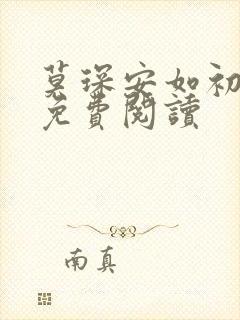 莫琛安如初
免費閱讀
南真